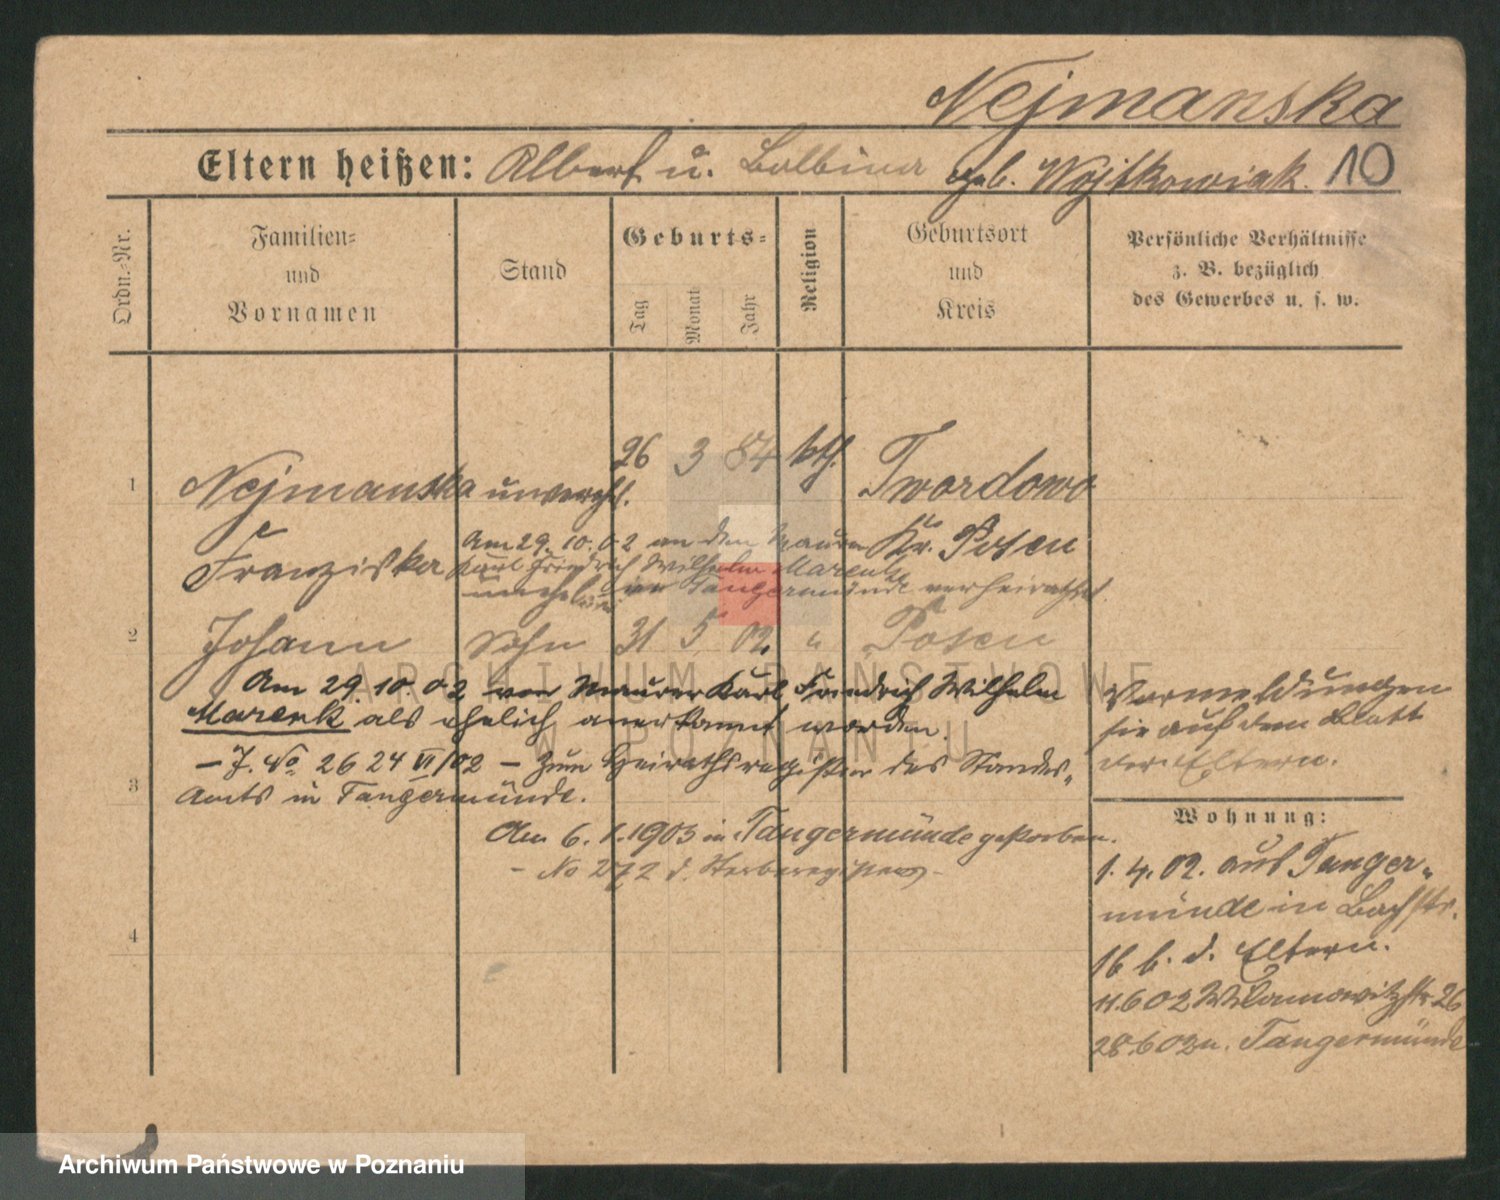 Nejmanska
Eltern heißen: Albert u. Balbina geb. Wojtkowiak. 10
Ordn.-Nr.
Familien-
und
Vornamen
Stand
Geburts-
Tag
Monat
Jahr
Religion
Geburtsort
und
Kreis
Persönliche Verhältnisse
z. B. bezüglich
des Gewerbes u. s. w.
1 Nejmanska unverehl. 26 3 84 kth. Twordowo
Franziska Kr. Posen
Am 29. 10. 02 an den Maurer
Karl Friedrich Wilhelm Marenk
in Tangermünde verheirathet
2 Johann Sohn 31 5 02. " Posen
Am 29. 10. 02 von Maurer Karl Friedrich Wilhelm
Marenk als ehelich anerkannt worden.
– J. No 26 24 VI/02 – Zum Heirathsregister des Standes-
3 Amts in Tangermünde.
Am 6. 1. 1903 in Tangermünde gestorben.
– No 272 d. Sterberegisters –
4
Vormeldungen
sie auf dem Blatt
der Eltern.
Wohnung:
1. 4. 02. aus Tanger-
münde in Bachstr.
16 b. d. Eltern.
11.6 02 Wilamowitzstr 26
28.6 02 n. Tangermünde
ARCHIWUM PAŃSTWOWE
W POZNANIU
Archiwum Państwowe w Poznaniu